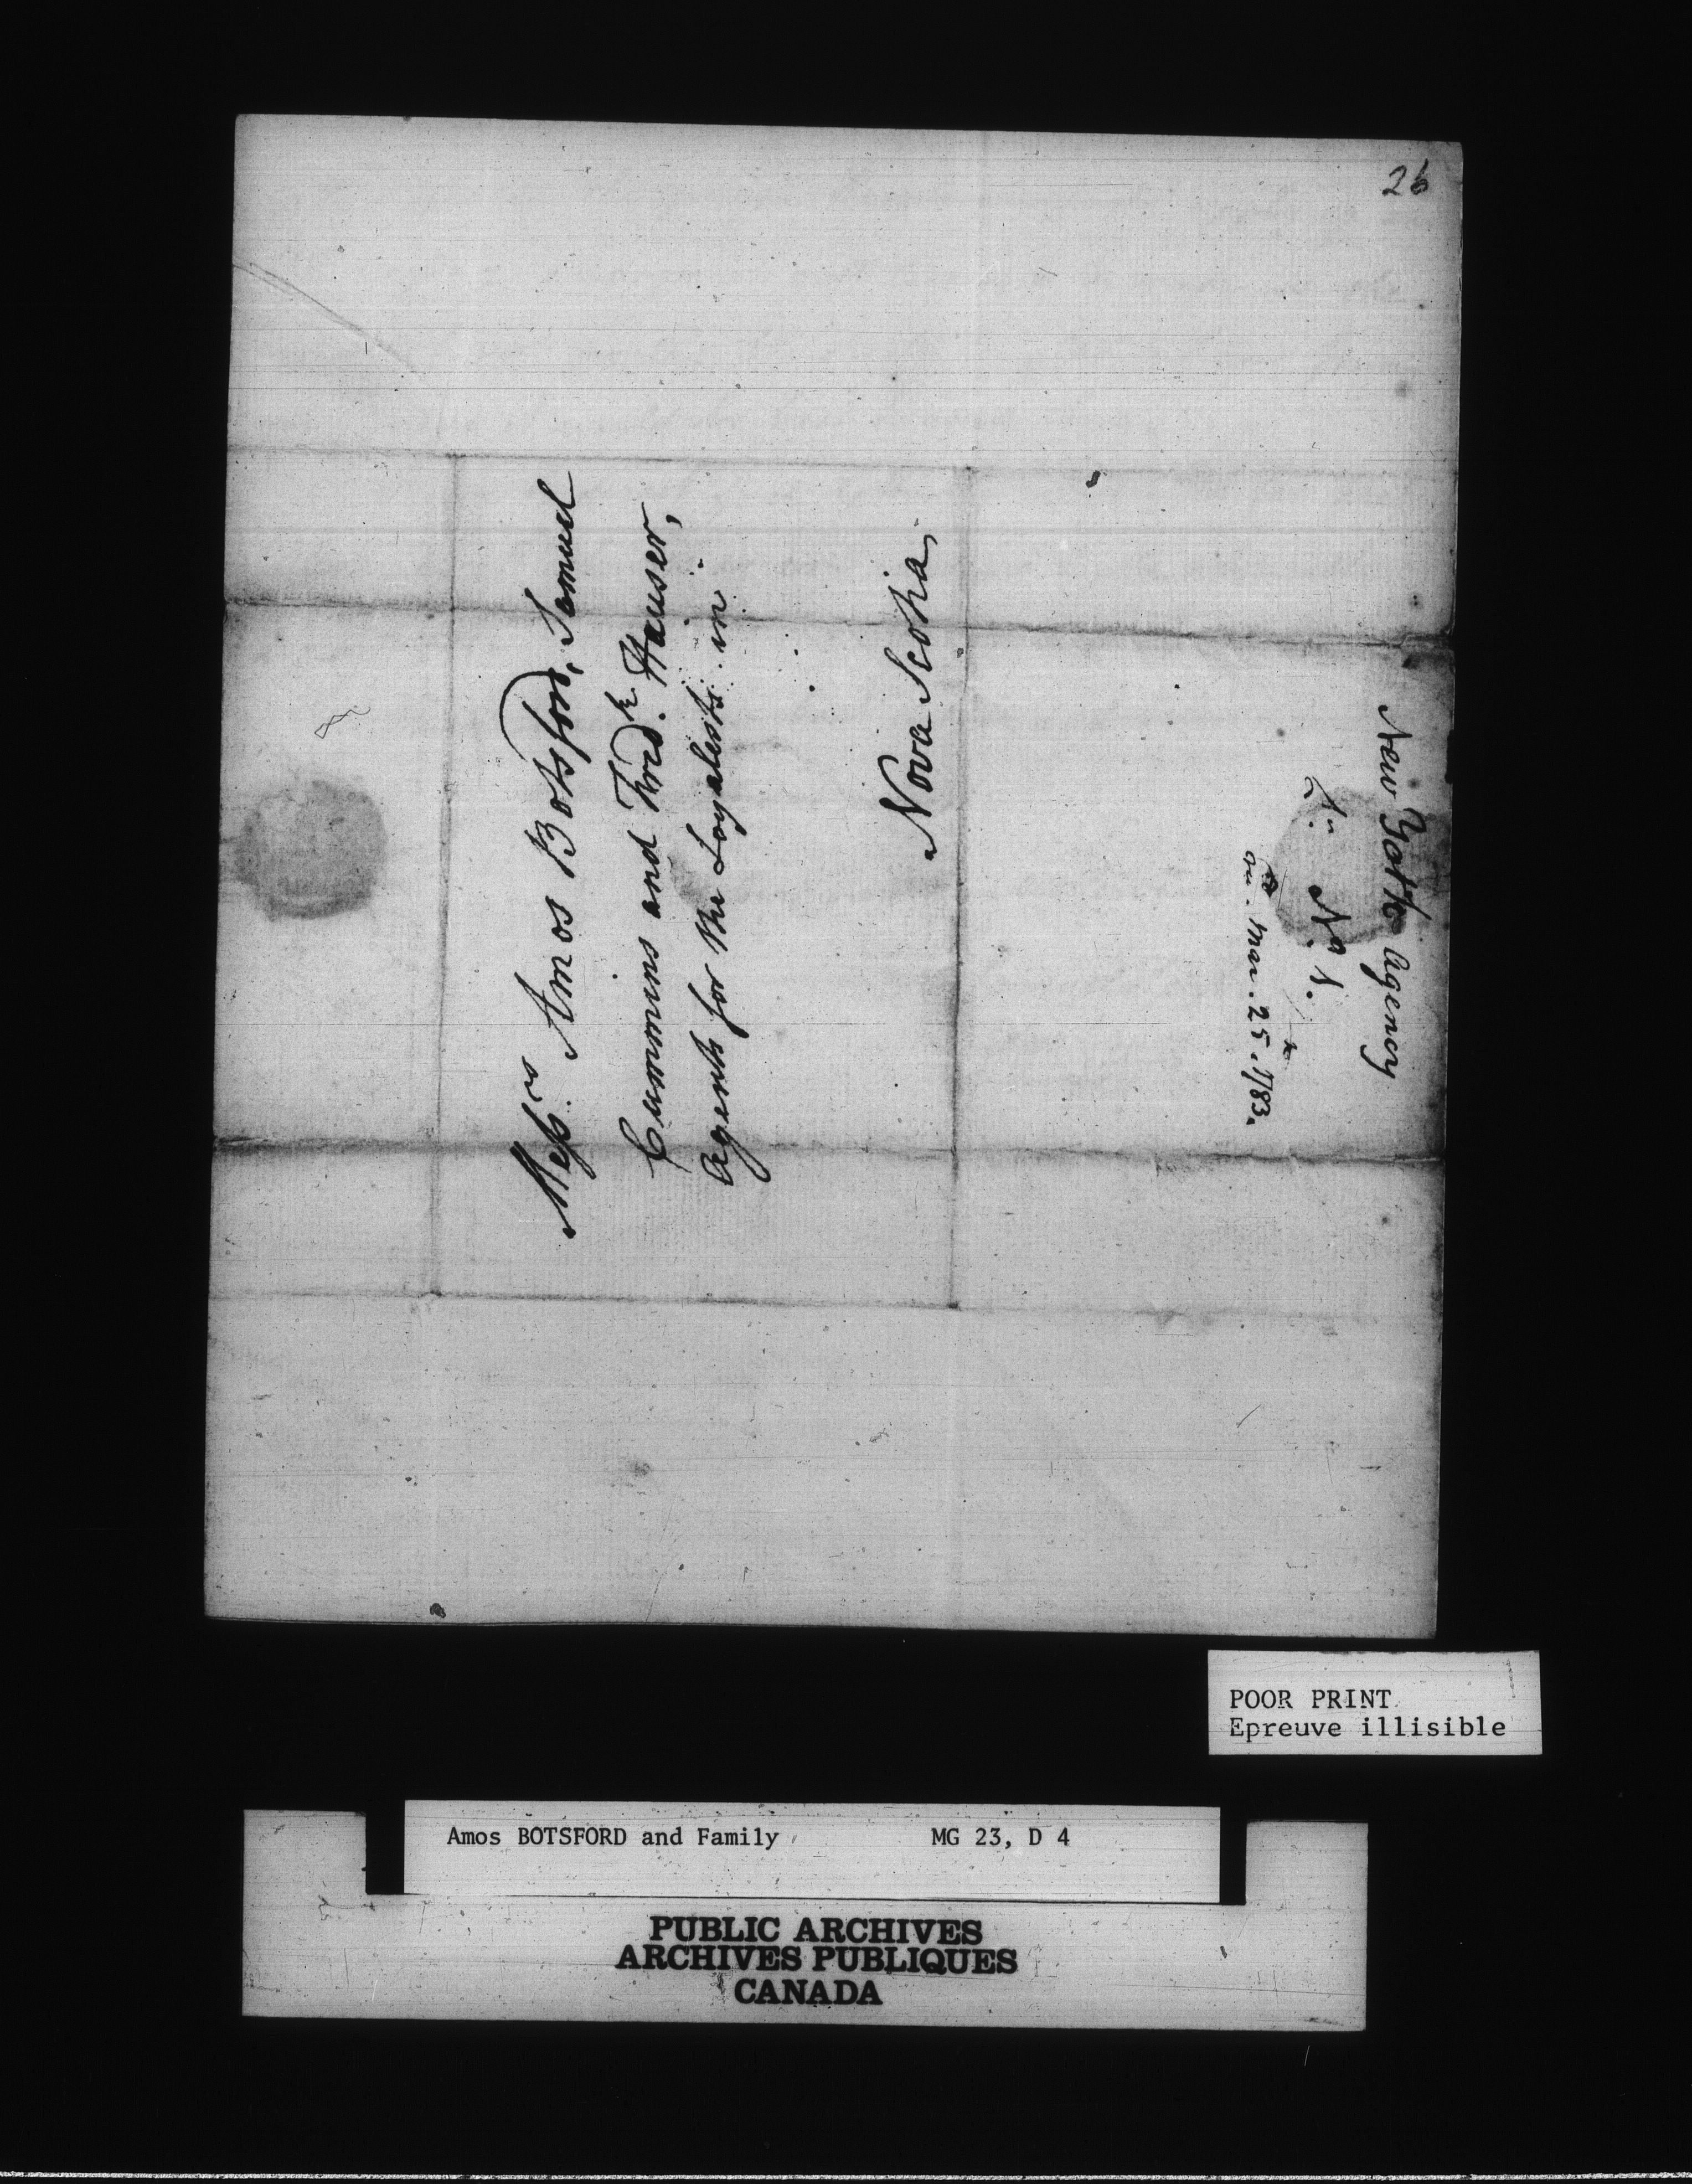 26
Messrs. Amos Botsford, Samuel
Cummins and Fredk. Hauser,
Agents for the Loyalists in
Nova Scotia
New York Agency
L. No. 1.
Mar. 25th. 1783.
POOR PRINT
Epreuve illisible
Amos BOTSFORD and Family MG 23, D 4
PUBLIC ARCHIVES
ARCHIVES PUBLIQUES
CANADA